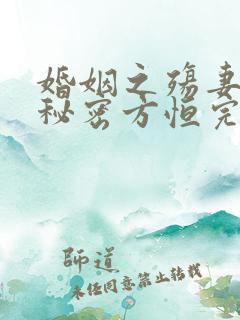 婚姻之殇妻
秘密方恒完
師道
未经同意禁止转载